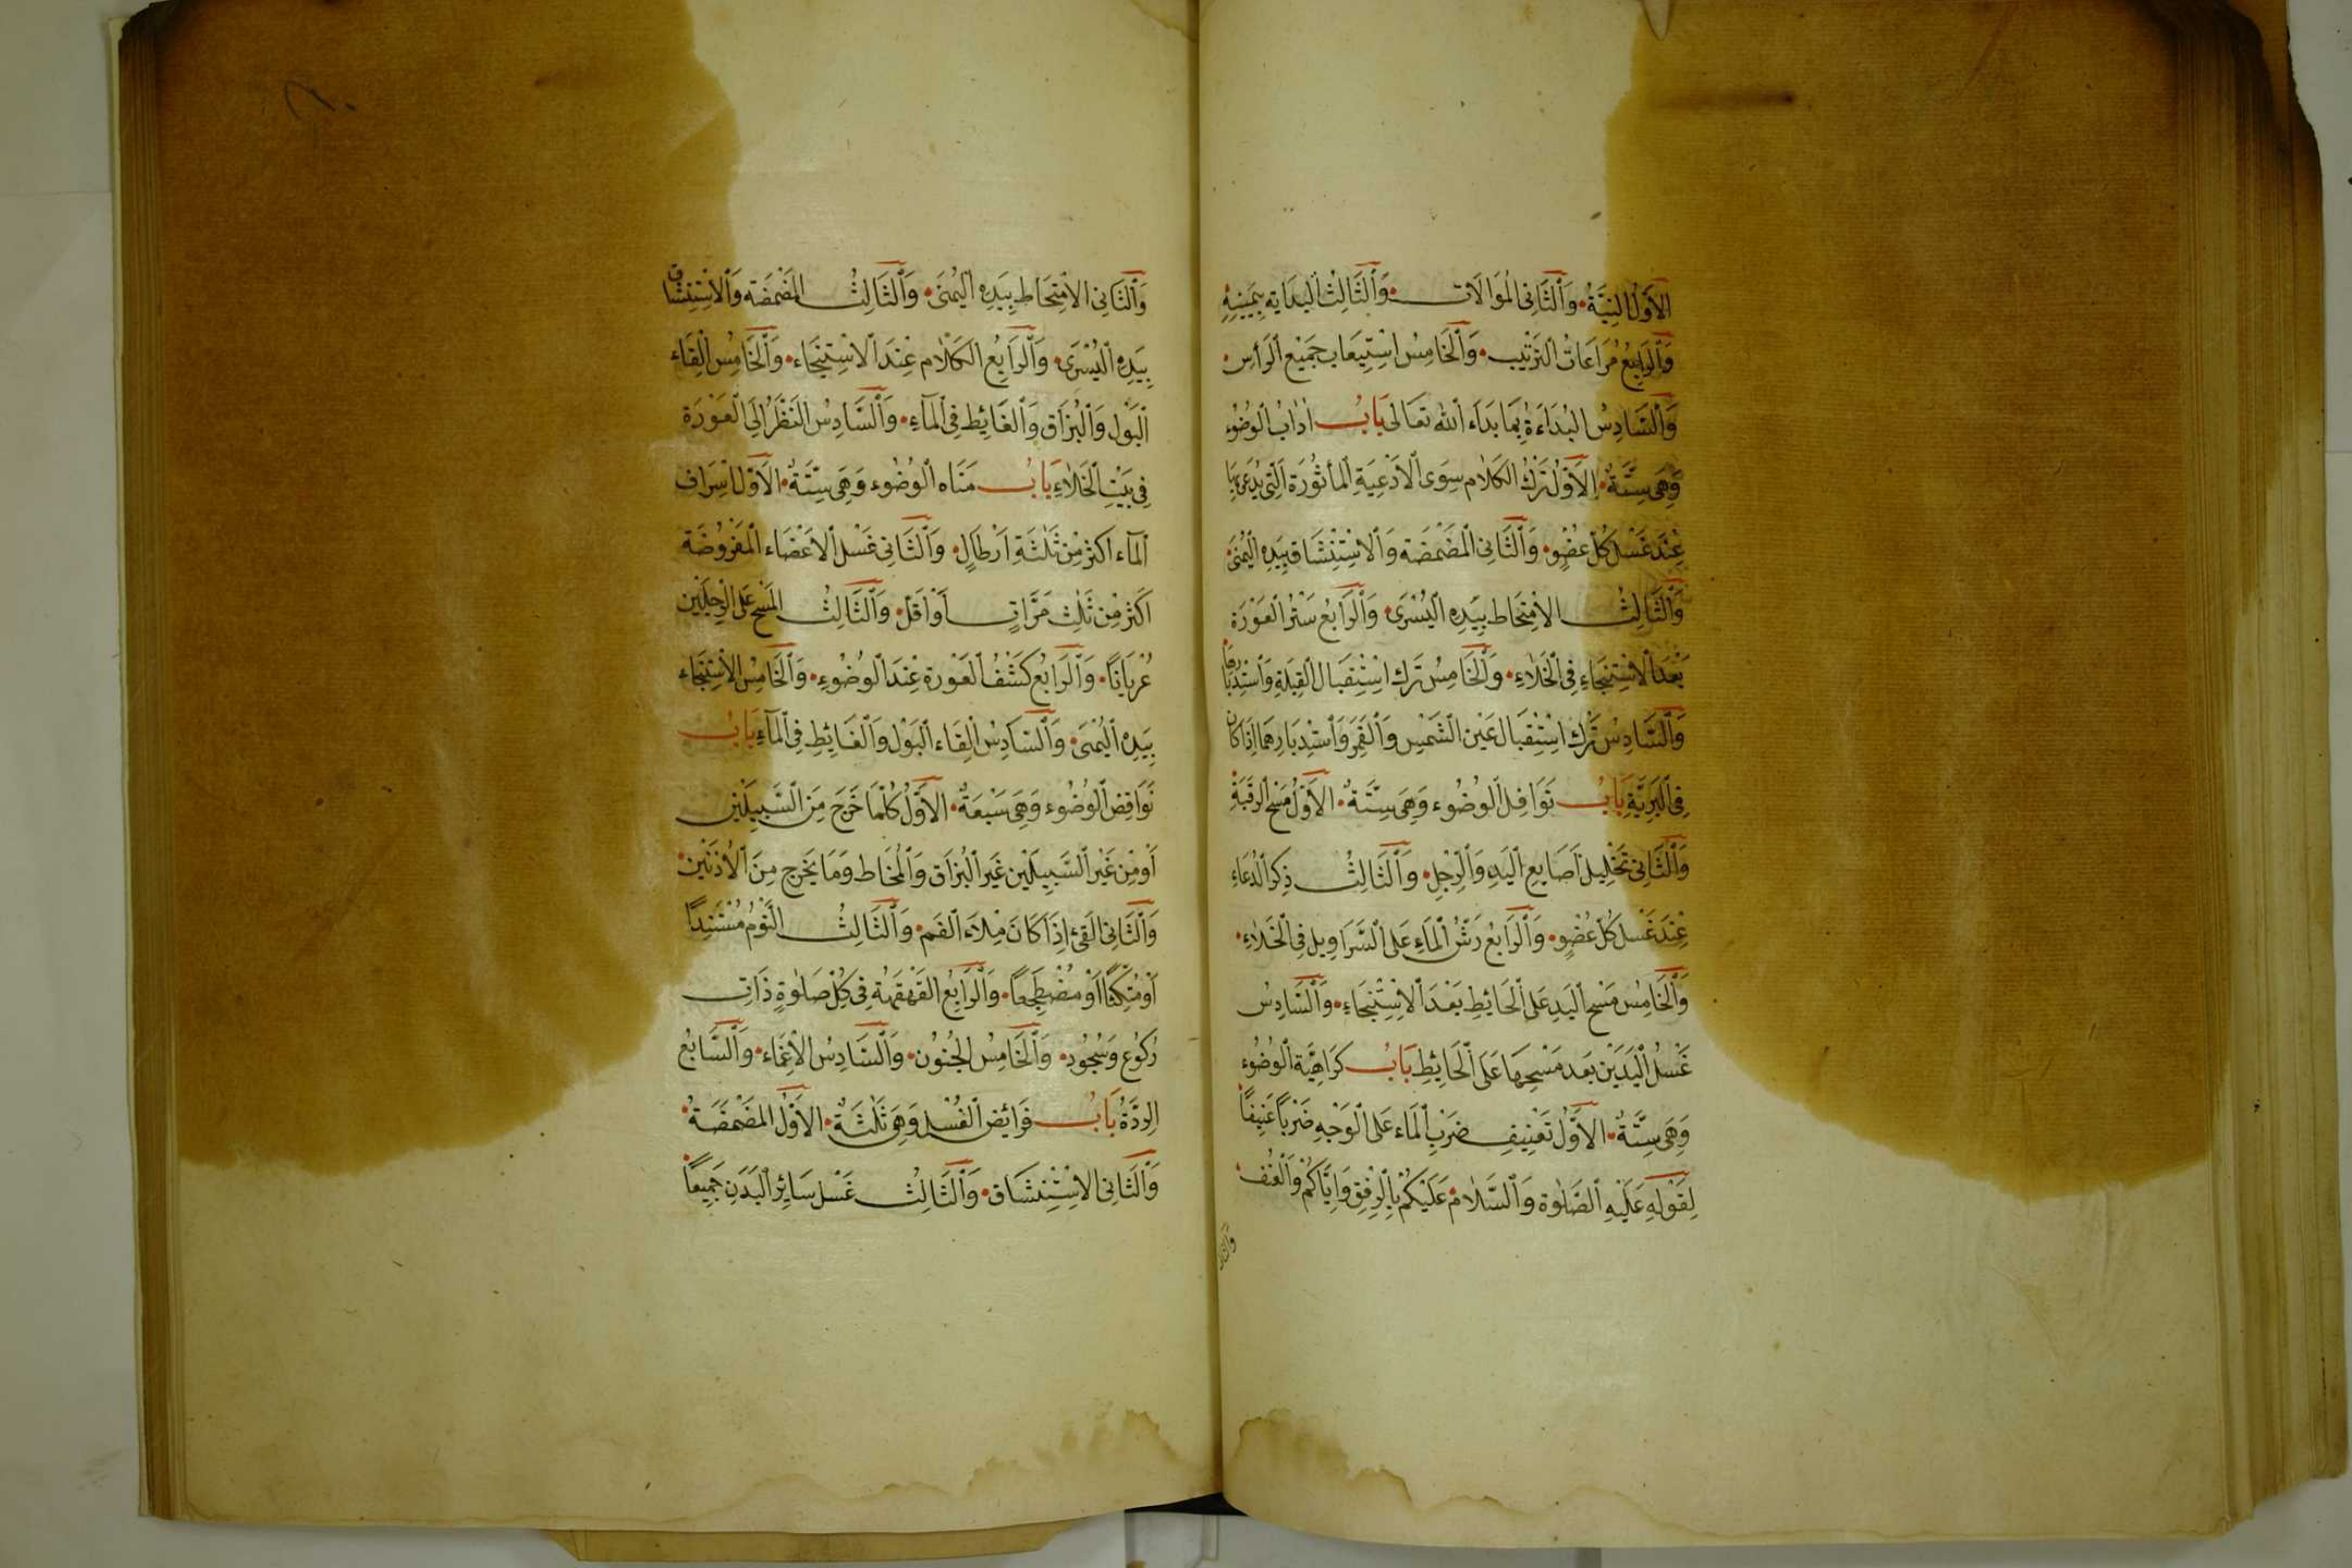 اَلْاَوَّلُ النِّيَّةُ وَٱلثَّانِى الْمُوَالَات وَٱلثَّالِثُ الْبِدَايَه بِيَمِينِهِ
وَٱلرَّابِعُ مُرَاعَاتُ ٱلتَّرْتِيب وَٱلْخَامِسُ اسْتِيعَاب جَمِيْع ٱلرَأس
وَٱلسَّادِسُ الْبُدَاءَةُ بِمَا بَدَاَءَ ٱللّٰه تَعَالى بَابُ اٰدَابُ ٱلوُضُوء
وَهِىَ سِتَّةٌ اَلْاَوَّلُ تَرْكُ الْكَلَام سِوَى ٱلْاَدْعِيَةِ ٱلْمَأثُوُرَة اَلَّتِى يُدْعٰى بِهَا
عِنْدَ غَسْل كُلّ عُضْوٍ وَٱلثَّانِى الْمَضْمَضَه وَٱلاسْتِنْشَاق بِيَدِهِ ٱلْيُمْنَى
وَٱلثَّالِثُ الاِمْتِحَاط بِيَدِهِ ٱلْيُسْرَى وَٱلرَابِعُ سَتْرُ العَوْرَة
بَعْدَ ٱلاسْتِنْجَاءِ فِى ٱلْخَلَاءِ وَٱلْخَامِسُ تَرك اسْتِقْبَال ٱلقِبلَةِ وَٱسْتِدْبَارهَا
وَٱلسَّادِسُ تَرْك اسْتِقْبَال عَيْن ٱلشَّمْسِ وَٱلْقَمَر وَٱسْتِدبَارِهِمَا اِذَا كَانَ
فِى ٱلبَرِيَّةِ بَابُ نَوَافِل ٱلوُضُوء وَهِىَ سِتَّةٌ اَلْاَوَّلُ مَسْح ٱلرقَبَةِ
وَٱلثَّانِى تَخْلِيل اَصَابِع ٱلْيَدِ وَٱلْرِجْلِ وَٱلثَّالِثُ ذِكر ٱلدُعَاءِ
عِنْدَ غَسْل كُلّ عُضْوٍ وَٱلرَابِعُ رَشّ ٱلْمَاءِ عَلَى ٱلسَّرَاوِيل فِى ٱلْخَلَاءِ
وَٱلْخَامِس مَسْح ٱليَدِ عَلَى ٱلْحَائِطِ بَعْدَ ٱلاسْتِنْجَاءِ وَٱلسَّادِسُ
غَسْلُ ٱلْيَدَيْن بَعد مَسْحِهَا عَلَى ٱلْحَائِطِ بَابُ كَرَاهِيَّة ٱلوُضُوء
وَهِىَ سِتَّةٌ اَلْاَوَّلُ تَعْنِيف ضَرْب ٱلْمَاء عَلَى ٱلْوَجْهِ ضَرْبًا عَنِيفًا
لِقَوْلِهِ عَلَيْهِ ٱلصَّلٰوة وَٱلسَّلَام عَلَيكُمْ بِالرِفْقِ وَاِيَّاكُمْ وَٱلْعُنْف
وَٱلثَّانِى الاِمْتِحَاط بِيَدِهِ ٱلْيُمْنَى وَٱلثَّالِثُ الْمَضْمَضَه وَٱلاسْتِنْشَاق
بِيَدِهِ ٱلْيُسْرَى وَٱلرَابِعُ الكَلَام عِنْدَ ٱلاسْتِنْجَاء وَٱلْخَامِسُ اِلْقَاء
ٱلْبَول وَٱلْبُزَاق وَٱلْغَايِط فِى ٱلْمَآءِ وَٱلسَّادِسُ النَّظَرُ اِلَى العَوْرَة
فِى بَيْتِ ٱلخَلَاءِ بَابُ مَنَاه ٱلوُضُوء وَهِىَ سِتَّةٌ اَلْاَوَّل اِسْرَاف
ٱلْمَاء اَكثَر مِنْ ثَلٰثَةِ اَرْطَالٍ وَٱلثَّانِى غَسْل ٱلْاَعْضَاء الْمَفْرُوضَة
اَكثَر مِنْ ثَلٰث مَرَّاتٍ اَوْ اَقَلّ وَٱلثَّالِثُ الْمَسْح عَلَى ٱلرِجْلَيْن
عُرْيَانًا وَٱلرَابِعُ كَشْفُ ٱلعَوْرَة عِنْدَ ٱلوُضُوءِ وَٱلْخَامِسُ الاسْتِنْجَاء
بِيَدِهِ ٱلْيُمْنَى وَٱلسَّادِسُ اِلْقَاء ٱلْبَوْل وَٱلْغَائِطِ فِى ٱلْمَآءِ بَابُ
نَوَاقِض ٱلْوُضُوء وَهِىَ سَبْعَةٌ اَلْاَوَّلُ كُلَّمَا خَرَجَ مِنَ ٱلسَّبِيلَيْن
اَوْ مِنْ غَيْر ٱلسَّبِيلَيْن غَيَر ٱلْبُزَاق وَٱلْمُخَاط وَمَا يَخرج مِنَ ٱلْاُذنَيْن
وَٱلثَّانِى القَىْءُ اِذَا كَانَ مِلَاَء الفَم وَٱلثَّالِثُ النَّوْمُ مُسْتَنِدًا
اَوْ مُتَّكِئًا اَوْ مُضْطَجِعًا وَٱلْرَابِعُ القَهْقَهَةُ فِى كُلّ صَلٰوةٍ ذَاتِ
رُكُوُع وَسُجُودٍ وَٱلْخَامِسُ الجُنُوُن وَٱلسَّادِسُ الْاِغْمَاء وَٱلسَّابِعُ
اَلرِدَّةُ بَابُ فَرَائِض ٱلْغُسْل وَهِىَ ثَلٰثَةٌ اَلْاَوَّلُ المَضْمَضَةُ
وَٱلثَّانِى الاسْتِنْشَاق وَٱلثَّالِثُ غَسْل سَايِر ٱلْبَدَنِ جَمِيعًا